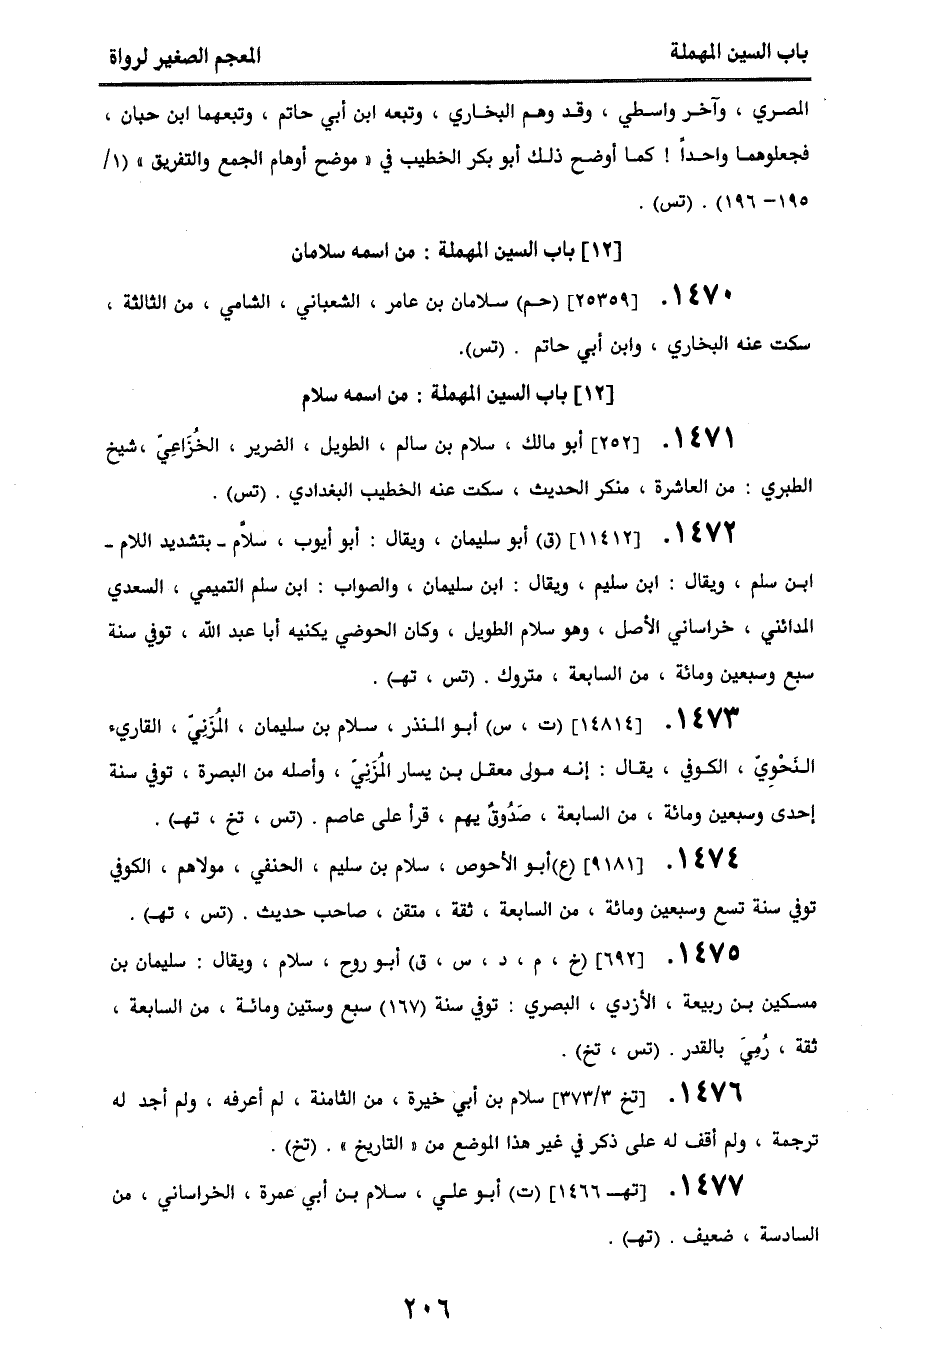 باب السين المهملة
المعجم الصغير لرواة
المصري ، وآخر واسطي ، وقد وهم البخاري ، وتبعه ابن أبي حاتم ، وتبعهما ابن حبان ،
فجعلوهما واحداً ! كما أوضح ذلك أبو بكر الخطيب في « موضح أوهام الجمع والتفريق » (١/
١٩٥– ١٩٦) . (تس) .
[١٢] باب السين المهملة : من اسمه سلامان
١٤٧٠. [٢٥٣٥٩] (حم) سلامان بن عامر ، الشعباني ، الشامي ، من الثالثة ،
سكت عنه البخاري ، وابن أبي حاتم . (تس).
[١٢] باب السين المهملة : من اسمه سلام
١٤٧١. [٢٥٢] أبو مالك ، سلام بن سالم ، الطويل ، الضرير ، الخُزَاعِيّ ،شيخ
الطبري : من العاشرة ، منكر الحديث ، سكت عنه الخطيب البغدادي . (تس) .
١٤٧٢. [١١٤١٢] (ق) أبو سليمان ، ويقال : أبو أيوب ، سلاَّم ـ بتشديد اللام ـ
ابن سلم ، ويقال : ابن سليم ، ويقال : ابن سليمان ، والصواب : ابن سلم التميمي ، السعدي
المدائني ، خراساني الأصل ، وهو سلام الطويل ، وكان الحوضي يكنيه أبا عبد الله ، توفي سنة
سبع وسبعين ومائة ، من السابعة ، متروك . (تس ، تهـ) .
١٤٧٣. [١٤٨١٤] (ت ، س) أبو المنذر ، سلام بن سليمان ، المُزَنِيّ ، القاريء
النَحْوِيّ ، الكوفي ، يقال : إنه مولى معقل بن يسار المُزَنِيّ ، وأصله من البصرة ، توفي سنة
إحدى وسبعين ومائة ، من السابعة ، صَدُوقٌ يهم ، قرأ على عاصم . (تس ، تخ ، تهـ) .
١٤٧٤. [٩١٨١] (ع)أبو الأحوص ، سلام بن سليم ، الحنفي ، مولاهم ، الكوفي
توفي سنة تسع وسبعين ومائة ، من السابعة ، ثقة ، متقن ، صاحب حديث . (تس ، تهـ) .
١٤٧٥. [٦٩٢] (خ ، م ، د ، س ، ق) أبو روح ، سلام ، ويقال : سليمان بن
مسكين بن ربيعة ، الأزدي ، البصري : توفي سنة (١٦٧) سبع وستين ومائة ، من السابعة ،
ثقة ، رُمِيَ بالقدر . (تس ، تخ) .
١٤٧٦. [تخ ٣٧٣/٣] سلام بن أبي خيرة ، من الثامنة ، لم أعرفه ، ولم أجد له
ترجمة ، ولم أقف له على ذكر في غير هذا الموضع من « التاريخ » . (تخ) .
١٤٧٧. [تهـ ١٤٦٦] (ت) أبو علي ، سلام بن أبي عمرة ، الخراساني ، من
السادسة ، ضعيف . (تهـ) .
٢٠٦